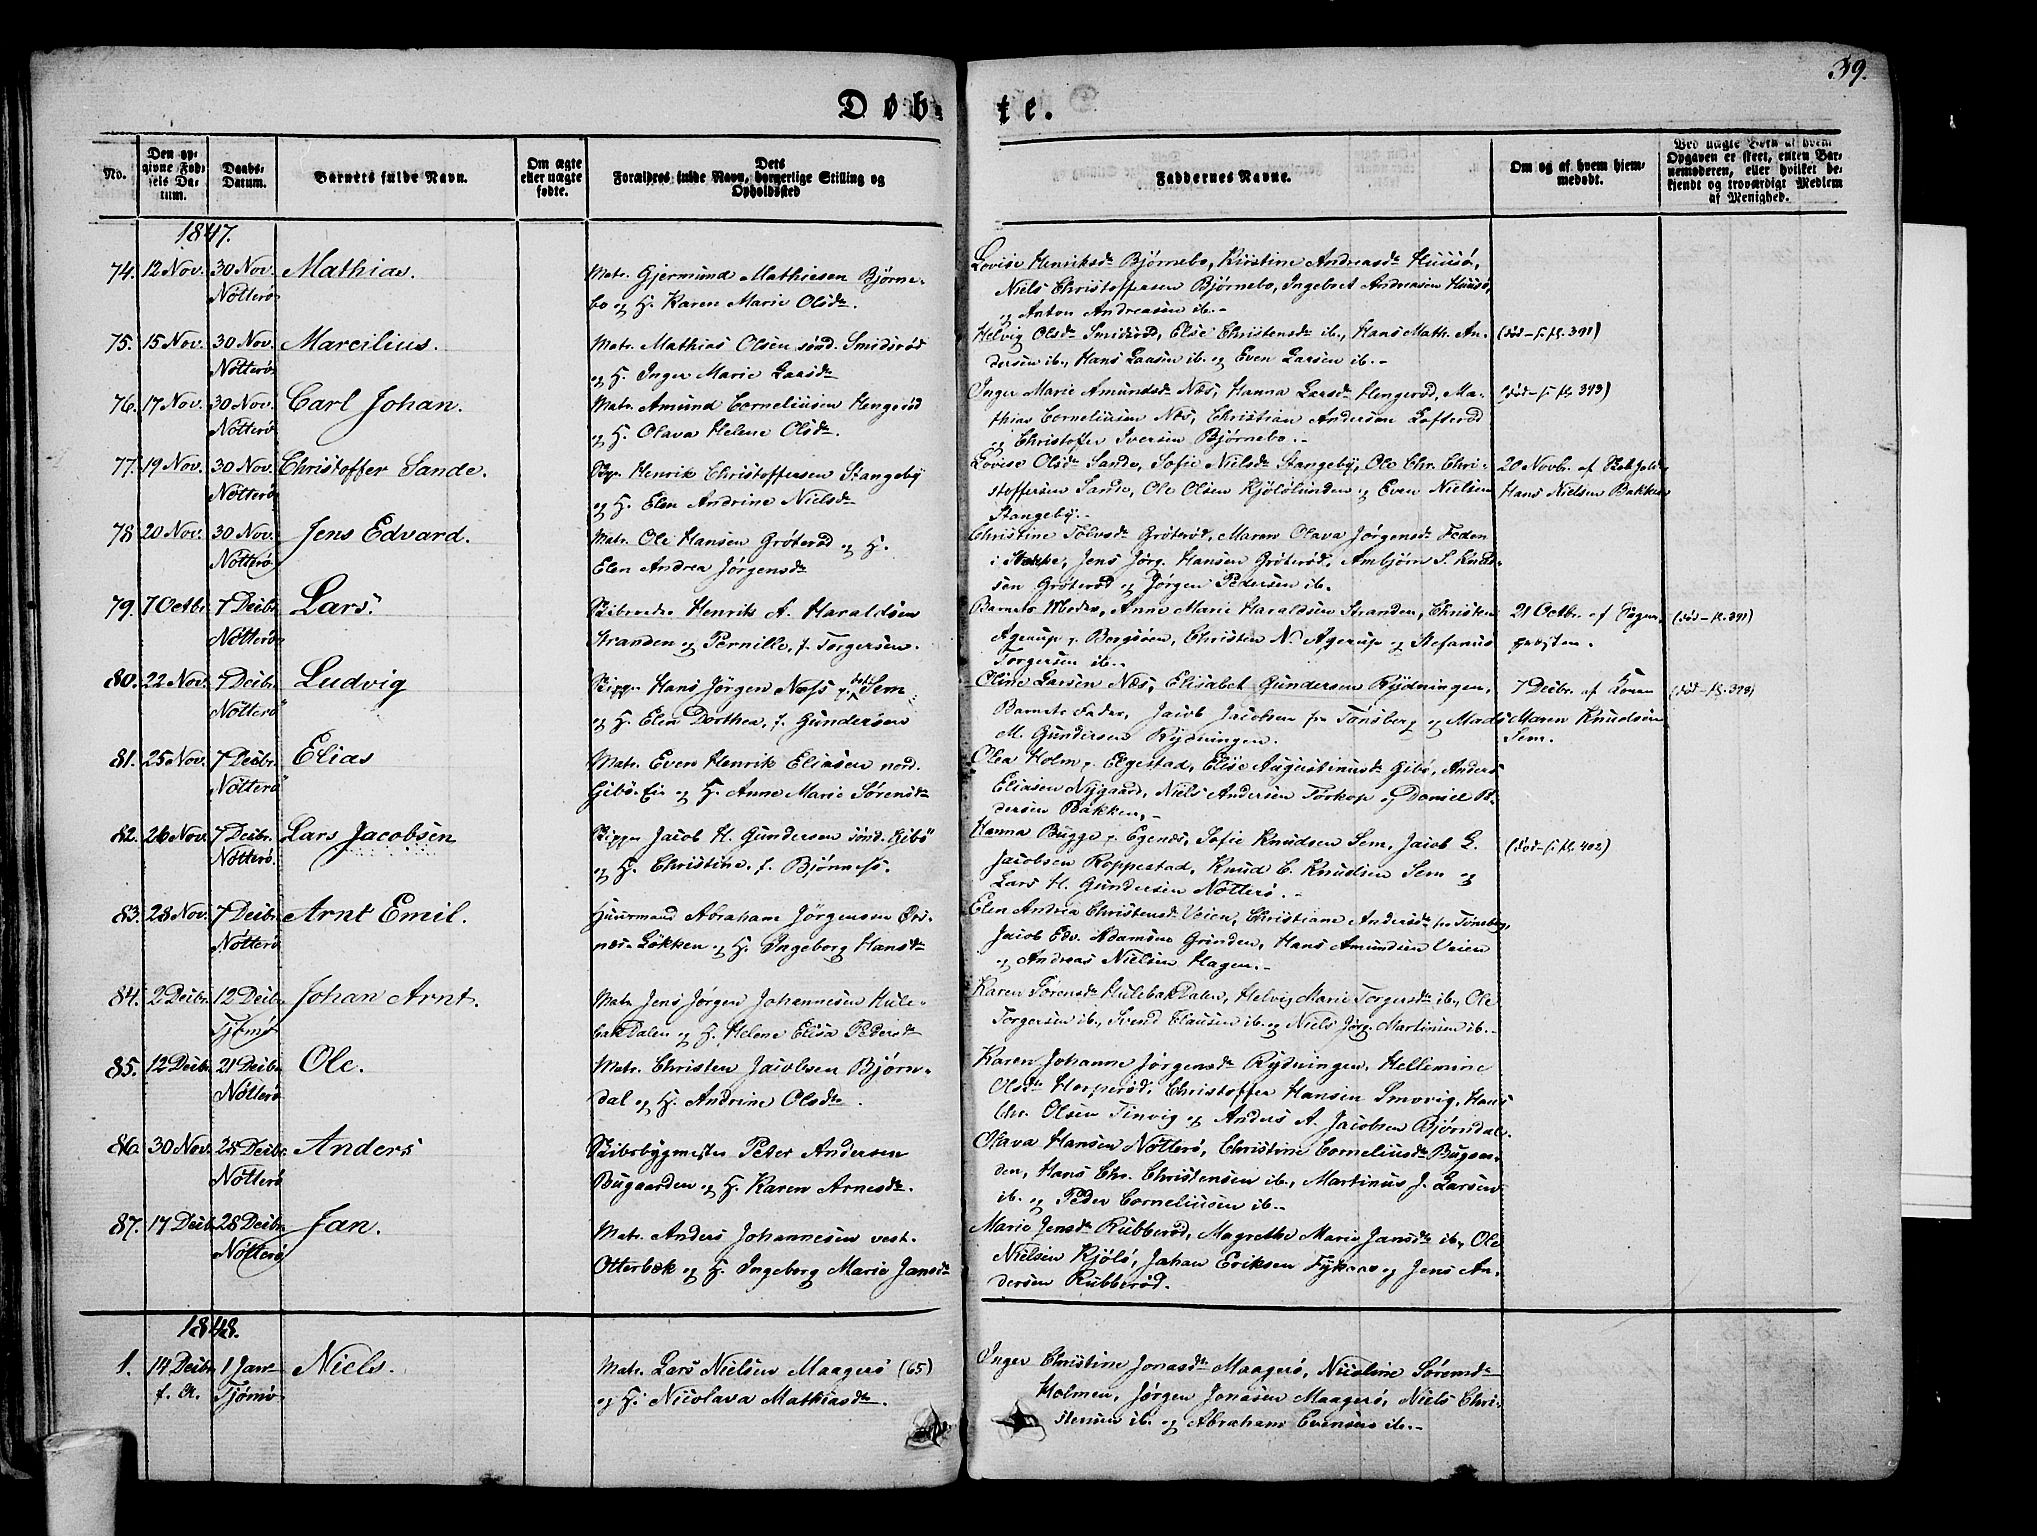 39.
Døbte.
No.
Den opgivne Fødsels Datum.
Daabs-Datum.
Barnets fulde Navn.
Om ægte eller uægte fødte.
Dets Forældres fulde Navn, borgerlige Stilling og Opholdssted
Faddernes Navne.
Om og af hvem hjemmedøbt.
Ved uægte Børn af hvem Opgaven er skeet, enten Barnemoderen, eller hvilket bekjendt og troværdigt Medlem af Menighed.
1847.
74. 12 Nov. 30 Nov. Nötterö Mathias.
Matr. Gjermund Mathiesen Björne-
bo og H. Karen Marie Olsdr.
Lovise Henriksdr Björnebo, Kirstine Andreasdr Huusö,
Niels Christoffersen Björnebo, Ingebret Andreasen Huusö,
og Anton Andreasen ib.-
75. 15 Nov. 30 Nov. Nötterö Marcilius.
Matr. Mathias Olsen sönd. Smidsröd
og H. Inger Marie Larsdr
Helvig Olsdr Smidsröd, Else Christensdr ib., Hans Math. An-
dersen ib., Hans Larsen ib. og Even Larsen ib.-
(död- fl. 391)
76. 17 Nov. 30 Nov. Nötterö Carl Johan.
Matr. Amund Corneliusen Hengsröd
og H. Olava Helene Olsdr.
Inger Marie Amundsdr Næs, Hanna Larsdr Hengsröd, Ma-
thias Corneliusen Næs, Christian Andersen Lofteröd
og Christoffer Iversen Björnebo.-
(död- fl. 393)
77. 19 Nov. 30 Nov. Nötterö Christoffer Sande.
Henrik Christoffersen Stangeby
og H. Elen Andrine Nielsdr
Lovise Olsdr Sande, Sofie Nielsdr Stangeby, Ole Chr. Chri-
stoffersen Sande, Ole Olsen Kjölölunden og Even Nielsen
Stangeby.-
20 Novbr. af
Hans Nielsen Bakken
78 20 Nov. 30 Nov. Nötterö Jens Edvard.
Matr. Ole Hansen Gröteröd og H.
Elen Andrea Jörgensdr
Christine Tolvsdr Gröteröd, Maren Olava Jörgensdr Feden
i Stokke, Jens Jörg. Hansen Gröteröd, Ambjörn S. Knud-
sen Gröteröd og Jörgen Pedersen ib.
79. 7 Octbr. 7 Decbr. Nötterö Lars.
Skibsrede Henrik A. Haraldsen
Stranden og Pernille, f. Torgersen.
Barnets Moder, Anne Marie Haraldsen Stranden, Christen
Agerup p. Borgsöen, Christen N. Agerup og Stefanus
Torgersen ib.-
21 Octbr. af Sogne-
præsten.
(död- fl. 391)
80. 22 Nov. 7 Decbr. Nötterö Ludvig
Skipp. Hans Jörgen Næss p. Sem
og H. Elen Dorthea, f. Gundersen
Oline Larsen Næs, Elisabet Gundersen Rydningen,
Barnets Fader, Jacob Jacobsen fra Tönsberg og Mads
M. Gundersen Rydningen.
7 Decbr. af Konen
Maren Knudsen
Sem.
(död- fl. 393)
81. 25 Nov. 7 Decbr. Nötterö Elias
Matr. Even Henrik Eliasen nord.
Gibö-Eie og H. Anne Marie Sörensdr
Olea Holm p. Elgestad, Elise Augustinusdr Gibö, Anders
Eliasen Nygaard, Niels Andersen Torkop og Daniel P.
dersen Bakken.-
82. 26 Nov. 7 Decbr. Nötterö Lars Jacobsen
Skipp. Jacob H. Gundersen sönd. Kibö
og H. Christine, f. Björness.
Hanna Bugge p. Egenæs, Sofie Knudsen Sem, Jacob G.
Jacobsen Roppestad, Knud C. Knudsen Sem og
Lars H. Gundersen Nötterö.-
(död- fl. 402)
83. 28 Nov. 7 Decbr. Nötterö Arnt Emil.
Huusmand Abraham Jörgensen Ors-
næs-Lökken og H. Ingeborg Hansdr
Elen Andrea Christensdr Veien, Christiane Andersdr fra Tönsberg,
Jacob Edv. Adamsen Grinden, Hans Amundsen Veien
og Andreas Nielsen Hagen.-
84. 2 Decbr. 12 Decbr. Tjömö Johan Arnt.
Matr. Jens Jörgen Johannesen Hule-
bakDalen og H. Helene Elisa Pedersdr
Karen Sörensdr HulebakDalen, Helvig Marie Torgersdr ib., Ole
Torgersen ib., Svend Clausen ib. og Niels Jörg. Martinsen ib.-
85. 12 Decbr. 21 Decbr. Nötterö Ole.
Matr. Christen Jacobsen Björn-
dal og H. Andrine Olsdr.
Karen Johanne Jörgensdr Rydningen, Hellemine
Olsdr Horperöd, Christoffer Hansen Smörvig, Hans
Chr. Olsen Tinvig og Anders A. Jacobsen Björndal.
86. 30 Nov. 28 Decbr. Nötterö Anders
Skibsbygmester Peter Andersen
Bugaarden og H. Karen Arnesdr.
Olava Hansen Nötterö, Christine Corneliusdr Bugaar-
den, Hans Chr. Christensen ib., Martinus J. Larsen
ib. og Peder Corneliusen ib.-
87. 17 Decbr. 28 Decbr. Nötterö Jan.
Matr. Anders Johannesen vest.
Otterbæk og H. Ingeborg Marie Jansdr
Marie Jensdr Rubberöd, Magrethe Marie Jansdr ib., Ole
Nielsen Kjölö, Johan Eriksen og Jens An-
dersen Rubberöd.
1848.
1. 14 Decbr. f. A. 1 Jan. Tjömö Niels.
Matr. Lars Nielsen Maagerö (65)
og H. Nicolava Mathiasdr.
Inger Christine Jonasdr Maagerö, Nicoline Sörensdr
Holmen, Jörgen Jonasen Maagerö, Niels Chri-
stensen ib. og Abraham Evensen ib.-